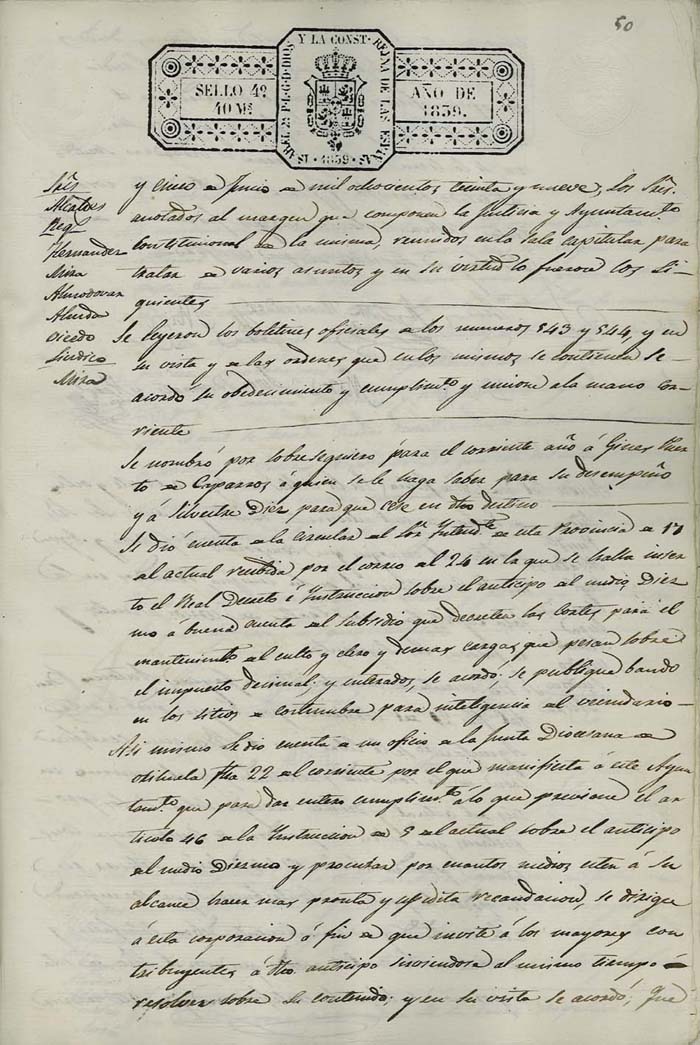 50
ISABEL 2ª P.L.G.D. DIOS Y LA CONST. REYNA DE LAS ESPAÑAS
SELLO 4º
40 Ms.
AÑO DE
1839.
1839
Sres
Alcaldes
Reg.s
Hernandez
Mira
Almodovar
Almida
Oicedo
Sindico
Mira
y cinco de Junio de mil ochocientos treinta y nueve, Los Sres.
anotados al margen que componen la Justicia y Ayuntam.to
Constitucional de la misma, reunidos en la Sala Capitular para
tratar de varios asuntos y en su virtud lo fueron los Si-
guientes
Se leyeron los boletines oficiales de los numeros 543 y 544, y en
su vista y de las ordenes que en los mismos se contienen se
acordó su obedecimiento y cumplim.to y unione a la mano cor-
riente
Se nombró por sobreseguiero para el corriente año á Gines
to de Caparros á quien se le haga saber para su desempeño
y á Silvestre Diez para que cese en dho destino
Se dió cuenta de la circular del Sor. Intend.te de esta Provincia de 17
del actual recibida por el correo del 24 en la que se halla inser
to el Real Decreto é Instruccion sobre el anticipo del medio Diez
mo á buena cuenta del subsidio que decreten las Cortes para el
mantenimto del culto y clero y demas cargas que pesan sobre
el impuesto decimal; y enterados, se acordó; se publique bando
en los sitios de costumbre para inteligencia del vecindario
Asi mismo se dio cuenta de un oficio de la Junta Diocesana de
Orihuela fha 22 del corriente por el que manifiesta á este Ayun
tam.to que para dar entero cumplim.to á lo que previene el ar
ticulo 46 de la Instruccion de 5 del actual sobre el anticipo
del medio Diezmo y procurar por cuantos medios esten á su
alcance hacer mas pronta y espedita recaudacion, se dirige
á esta corporacion á fin de que invite á los mayores con
tribuyentes á dho anticipo sirviendose al mismo tiempo
resolver sobre su contenido; y en su vista se acordó; Que